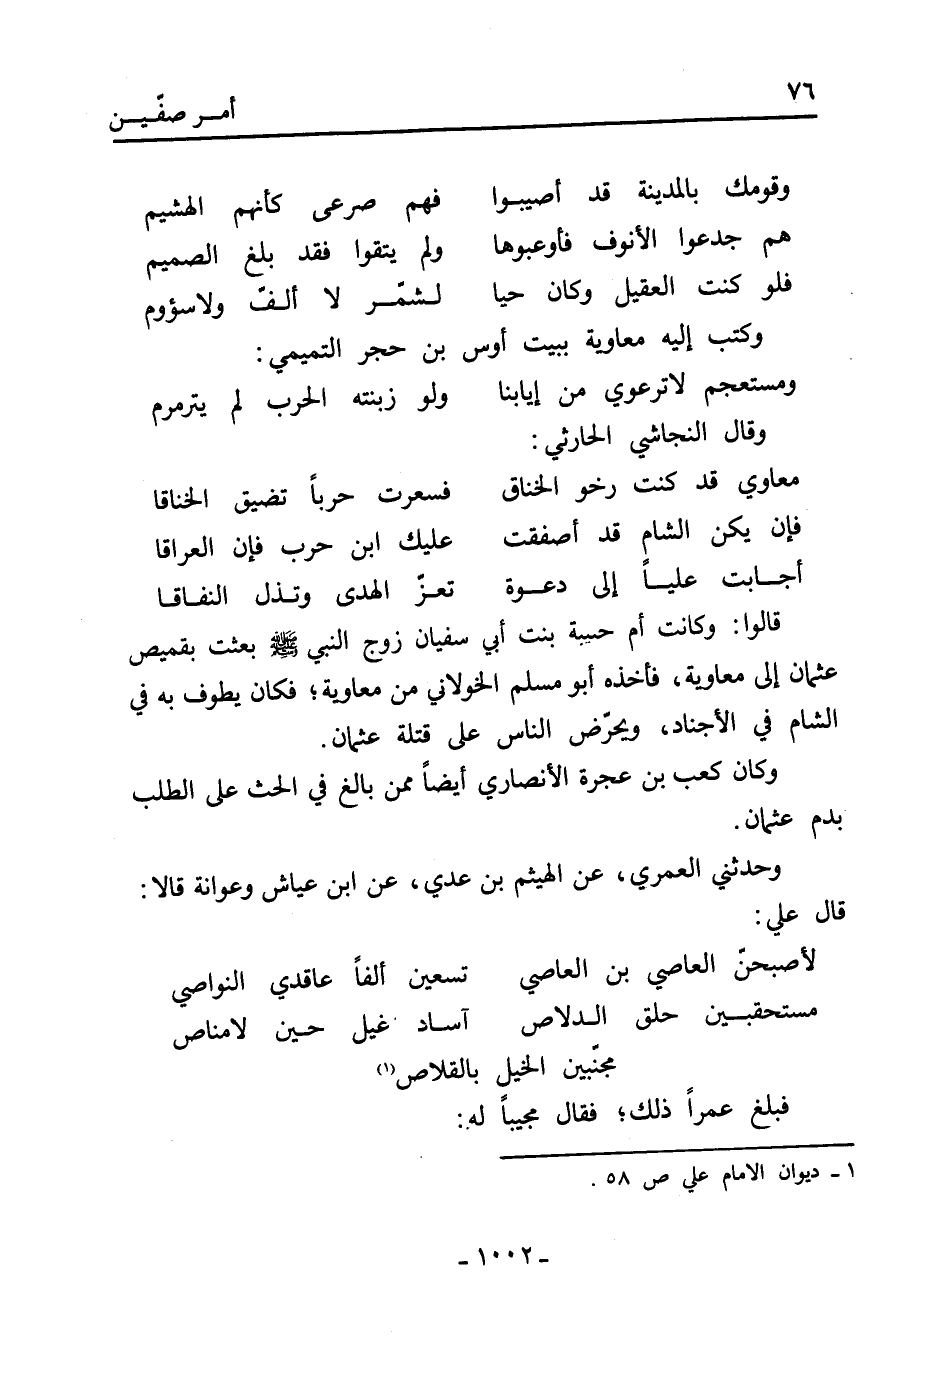 ٧٦
أمـر صفّيـن
وقومك بالمدينة قد أصيبـوا فهم صرعى كأنهم الهشيم
هم جدعوا الأنوف فأوعبوها ولم يتقوا فقد بلغ الصميم
فلو كنت العقيل وكان حيا لـشمّـر لا ألـفّ ولاسؤوم
وكتب إليه معاوية ببيت أوس بن حجر التميمي:
ومستعجم لاترعوي من إيابنا ولو زبنته الحرب لم يترمرم
وقال النجاشي الحارثي:
معاوي قد كنت رخو الخناق فسعرت حرباً تضيق الخناقا
فإن يكن الشام قد أصفقت عليك ابن حرب فإن العراقا
أجـابت عليـاً إلى دعـوة تعـزّ الهدى وتـذل النفـاقـا
قالوا: وكانت أم حبيبة بنت أبي سفيان زوج النبي ﷺ بعثت بقميص
عثمان إلى معاوية، فأخذه أبو مسلم الخولاني من معاوية؛ فكان يطوف به في
الشام في الأجناد، ويحرّض الناس على قتلة عثمان.
وكان كعب بن عجرة الأنصاري أيضاً ممن بالغ في الحث على الطلب
بدم عثمان.
وحدثني العمري، عن الهيثم بن عدي، عن ابن عياش وعوانة قالا:
قال علي:
لأصبحنّ العاصي بن العاصي تسعين ألفاً عاقدي النواصي
مستحقبـين حلق الـدلاص آسـاد غيل حـين لامناص
مجنّبين الخيل بالقلاص(١)
فبلغ عمراً ذلك؛ فقال مجيباً له:
١ ـ ديوان الامام علي ص ٥٨ .
ـ ١٠٠٢ ـ